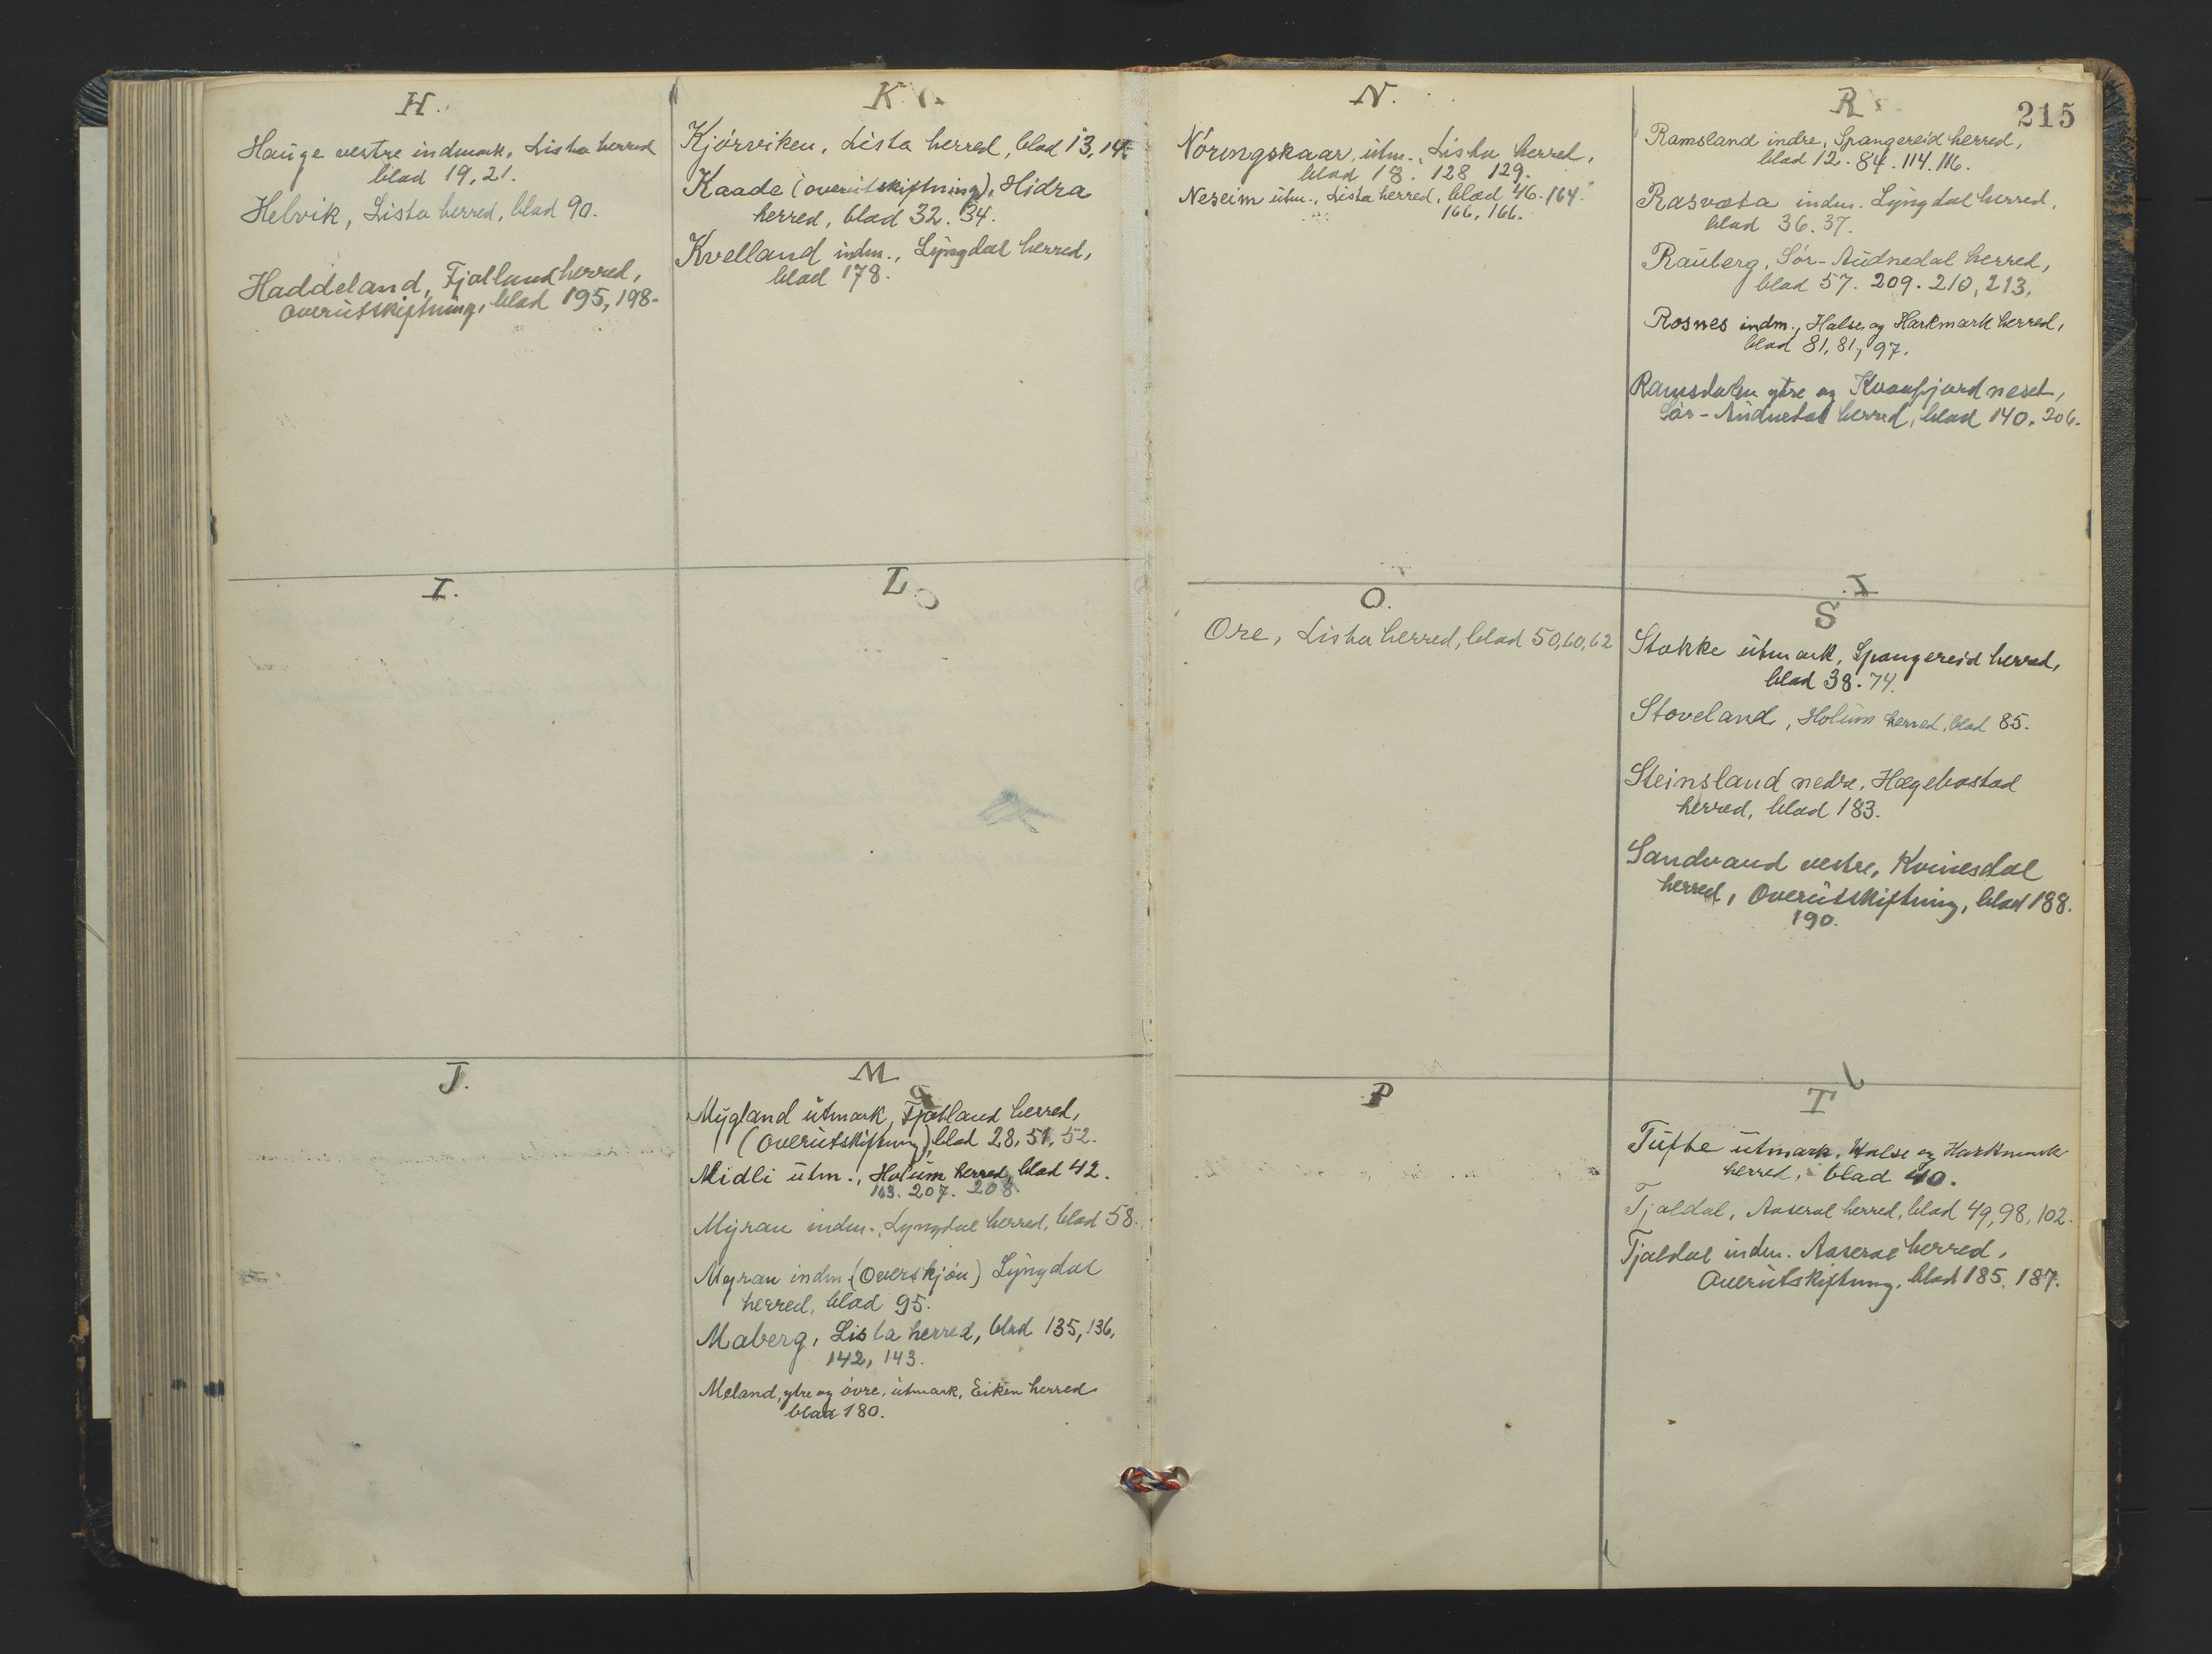 H.
Hauge vestre indmark, Lista herred
blad 19, 21.
Helvik, Lista herred, blad 90.
Haddeland, Fjotland herred,
Overutskiftning, blad 195, 198.
I.
J.
K
Kjørviken, Lista herred, blad 13, 14.
Kaade (overutskiftning), Hidra
herred, blad 32. 34.
Kvelland indm., Lyngdal herred,
blad 178.
L
M
Mygland utmark, Fjotland herred,
(Overutskiftning), blad 28, 51, 52.
Midli utm., Holum herred, blad 42.
163. 207. 208.
Myran indm., Lyngdal herred, blad 58.
Myran indm (Overskjøn) Lyngdal
herred, blad 95.
Maberg, Lista herred, blad 135, 136,
142, 143.
Meland, ytre og øvre, utmark, Eiken herred
blad 180.
N.
Nøringskaar, utm., Lista herred,
blad 18. 128 129.
Neseim utm., Lista herred, blad 46. 164.
166, 166.
O.
Ore, Lista herred, blad 50, 60, 62
P
215
R
Ramsland indre, Spangereid herred,
blad 12. 84. 114. 116.
Rasvata indm. Lyngdal herred,
blad 36. 37.
Rauberg, Sør-Audnedal herred,
blad 57. 209. 210, 213.
Rosnes indm., Halse og Harkmark herred,
blad 81, 81, 97.
ytre og
Sør-Audnedal herred, blad 140. 206.
S
Stokke utmark, Spangereid herred,
blad 38. 74.
Stoveland, Holum herred, blad 85.
Steinsland nedre, Hægebostad
herred, blad 183.
Sandvand vestre, Kvinesdal
herred, Overutskiftning, blad 188.
190.
T
Tufte utmark, Halse og Harkmark
herred, blad 40.
Tjaldal, Aaseral herred, blad 49, 98, 102.
Tjaldal indm. Aaseral herred,
Overutskiftning, blad 185, 187.